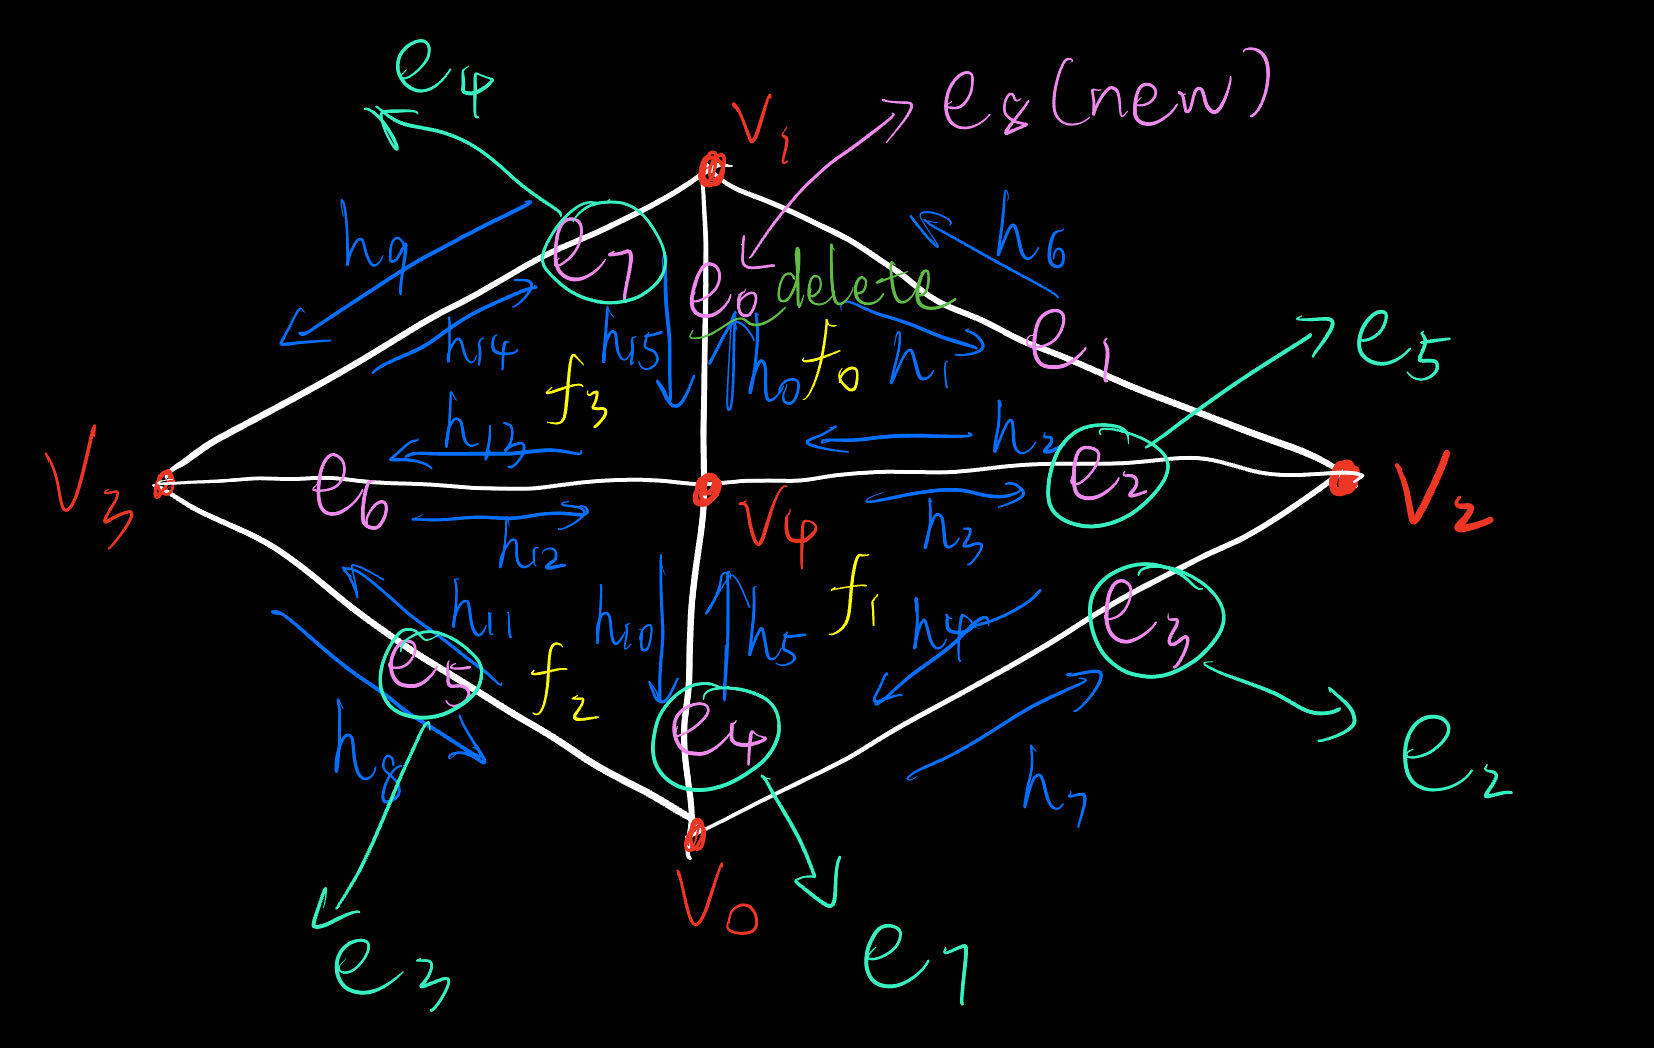 e4
e8(new)
v1
h9
e7
e0 delete
h6
h14
h15
h0
f0
h1
e1
e5
f3
h13
h2
v3
e6
e2
v2
h12
v4
h3
h11
h10
h5
f1
h4
e3
e5
f2
e4
h8
h7
e2
v0
e3
e7